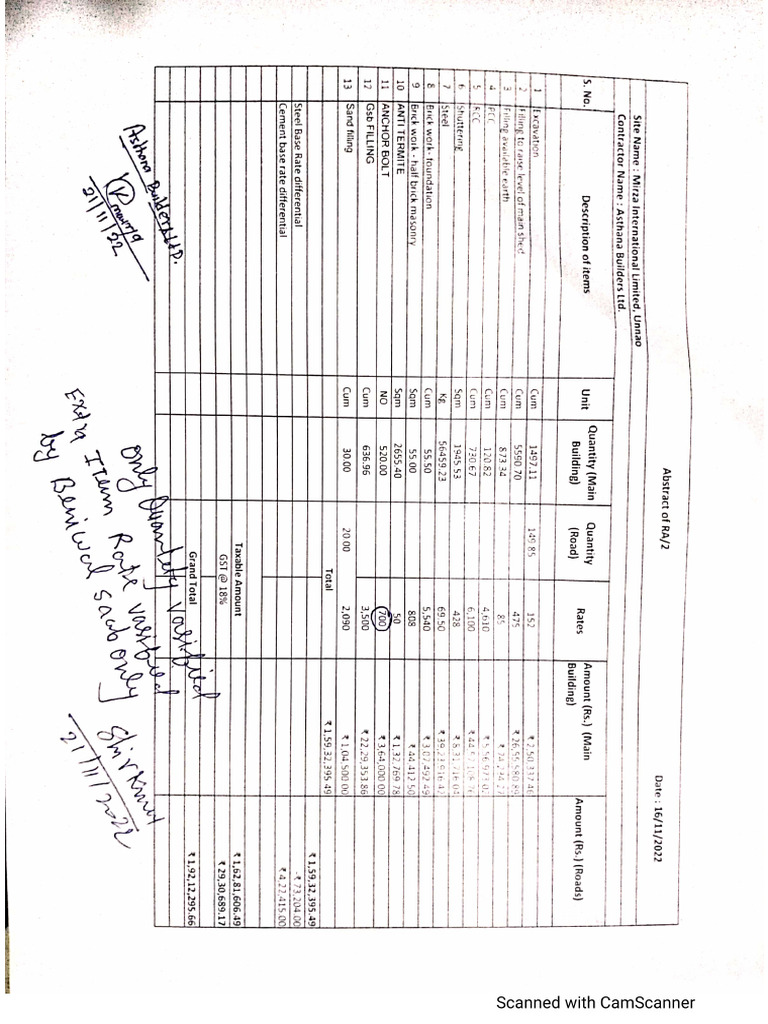 Abstract of RA/2
Date : 16/11/2022
Site Name : Mirza International Limited, Unnao
Contractor Name : Asthana Builders Ltd.
S. No. Description of items Unit Quantity (Main Building) Quantity (Road) Rates Amount (Rs.) (Main Building) Amount (Rs.) (Roads)
1 Excavation Cum 1497.11 149.85 152 ₹ 2,50,337.46
2 Filling to raise level of main shed Cum 5590.70 475 ₹ 26,55,580.89
3 Filling available earth Cum 873.34 85 ₹ 74,234.27
4 PCC Cum 120.82 4,610 ₹ 5,56,973.02
5 RCC Cum 730.67 6,100
6 Shuttering Sqm 1945.53 428
7 Steel Kg 56459.23 69.50 ₹ 39,23,916.42
8 Brick work- foundation Cum 55.50 5,540 ₹ 3,07,492.49
9 Brick work - half brick masonry Sqm 55.00 808 ₹ 44,412.50
10 ANTI TERMITE Sqm 2655.40 50 ₹ 1,32,769.78
11 ANCHOR BOLT NO 520.00 700 ₹ 3,64,000.00
12 Gsb FILLING Cum 636.96 3,500 ₹ 22,29,353.86
13 Sand filling Cum 30.00 20.00 2,090 ₹ 1,04,500.00
Total ₹ 1,59,32,395.49
₹ 1,59,32,395.49
Steel Base Rate differential -₹ 73,204.00
Cement base rate differential ₹ 4,22,415.00
Taxable Amount ₹ 1,62,81,606.49
GST @ 18% ₹ 29,30,689.17
Grand Total ₹ 1,92,12,295.66
Asthana Builders Ltd.
21/11/22
Only Quantity Varified
Extra Item Rate varified
by Beniwal saab only
Shiv Kumar
21/11/2022
Scanned with CamScanner